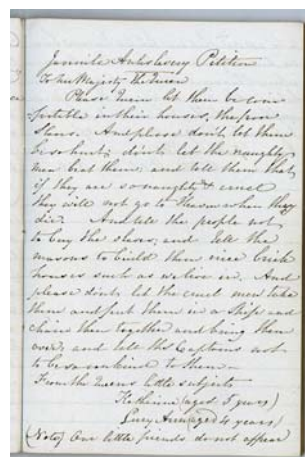 Juvenile Antislavery Petition
To her Majesty the Queen
Please Queen let them be com-
fortable in their houses, the poor
Slaves. And please don't let them
be so hurt; don't let the naughty
men beat them; and tell them that
if they are so naughty & cruel
they will not go to Heaven when they
die. And tell the people not
to buy the slaves, and tell the
masons to build them nice brick
houses such as we live in. And
please don't let the cruel men take
them and put them in a Ship and
chain them together and bring them
over, and tell the Captains not
to be so unkind to them —
From the Queens little subjects
Katherine (aged 5 years)
Lucy Ann (aged 4 years)
(Note) Our little friends do not appear